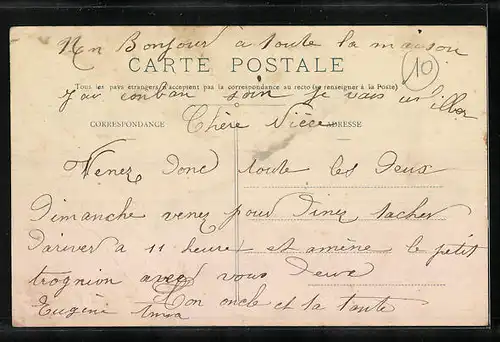 Un Bonjour à toute la maison
CARTE POSTALE
10
Tous les pays étrangers n'acceptent pas la correspondance au recto (se renseigner à la Poste)
soin je vais
CORRESPONDANCE
Chère Nièce
ADRESSE
Venez Donc toute les Deux
Dimanche venez pour Dinez tacher
Dariver a 11 heure et amène le petit
trognion avec vous Deux
Ton oncle et ta tante
Eugène